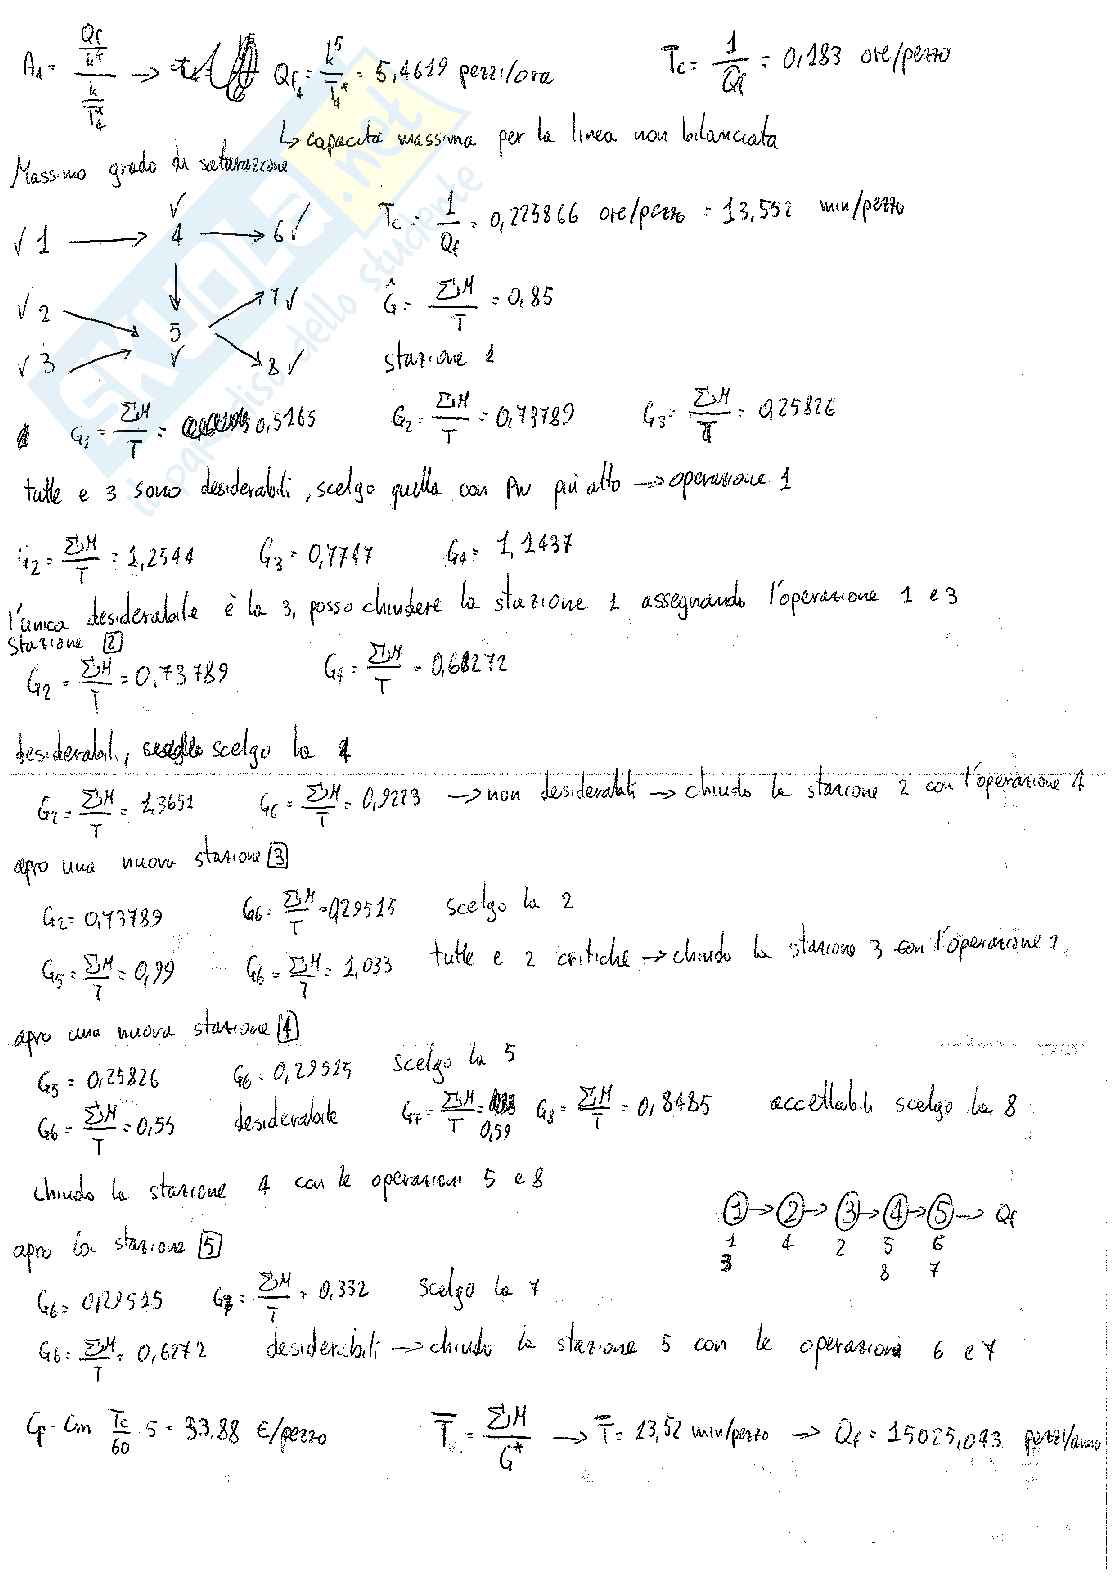 A₄ = (Qf/k⁵)/(k/T₄*) → Qf₄ = k⁵/T₄* = 5,4619 pezzi/ora Tc = 1/Qf = 0,183 ore/pezzo
↳ capacità massima per la linea non bilanciata
Massimo grado di saturazione
✓
✓ 1 → 4 → 6 ✓ Tc = 1/Qf = 0,225866 ore/pezzo = 13,552 min/pezzo
✓ 2 5 7 ✓ Ĝ = ΣM/T = 0,85
✓ 3 ✓ 8 ✓ stazione 1
G₁ = ΣM/T = 0,5165 G₂ = ΣM/T = 0,73789 G₃ = ΣM/T = 0,25826
tutte e 3 sono desiderabili, scelgo quella con PW più alto → operazione 1
G₂ = ΣM/T = 1,2544 G₃ = 0,7747 G₄ = 1,1437
l'unica desiderabile è la 3, posso chiudere la stazione 1 assegnando l'operazione 1 e 3
Stazione 2
G₂ = ΣM/T = 0,73789 G₄ = ΣM/T = 0,68272
desiderabili, scelgo la 4
G₂ = ΣM/T = 1,3651 G₆ = ΣM/T = 0,9223 → non desiderabili → chiudo la stazione 2 con l'operazione 4
apro una nuova stazione 3
G₂ = 0,73789 G₆ = ΣM/T = 0,29515 scelgo la 2
G₅ = ΣM/T = 0,99 G₆ = ΣM/T = 1,033 tutte e 2 critiche → chiudo la stazione 3 con l'operazione 2
apro una nuova stazione 4
G₅ = 0,25826 G₆ = 0,29515 scelgo la 5
G₆ = ΣM/T = 0,55 desiderabile G₇ = ΣM/T = 0,59 G₈ = ΣM/T = 0,8485 accettabili scelgo la 8
chiudo la stazione 4 con le operazioni 5 e 8
1 → 2 → 3 → 4 → 5 → Qf
1 4 2 5 6
3 8 7
apro la stazione 5
G₆ = 0,29515 G₇ = ΣM/T = 0,332 scelgo la 7
G₆ = ΣM/T = 0,6272 desiderabili → chiudo la stazione 5 con le operazioni 6 e 7
Cp = Cm Tc/60 · 5 = 33,88 €/pezzo T̄ = ΣM/G* → T̄ = 13,52 min/pezzo → Qf = 15025,043 pezzi/anno
SKUOLA.net
il paradiso dello studente